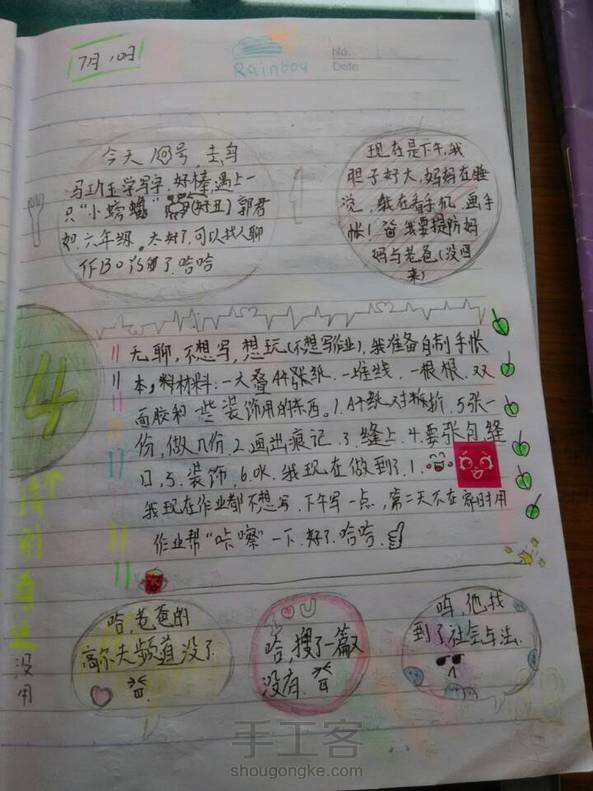 7月10日
Rainbow
No.
Date
今天10号 去鸟
马班主学写字.好棒.遇上一
只"小螃蟹"(好丑)郭君
妲.六年级.太好了.可以找人聊
作BO了.哈哈
现在是下午,我
胆子好大,妈妈在睡
觉,我在看手机,画手
帐!我要提防妈
妈与老爸(没回
来)
无聊,不想写,想玩(不想写作业),我准备自制手帐
本,材料:一大叠A4张纸.一堆线.一根棍.双
面胶和一些装饰用的东西。1.A4纸对折,5张一
份,做几份.2.画出痕记.3.缝上.4.要张包缝
口,5.装饰.6.ok.我现在做到了.1.
我现在作业都不想写.下午写一点,第二天不在家时用
作业帮"咔嚓"一下.好了.哈哈.
4
指引
没用
哈,老爸的
高尔夫频道没了.
哈,搜了一篇又
没有.
呜,他找
到了社会与法.
手工客
shougongke.com